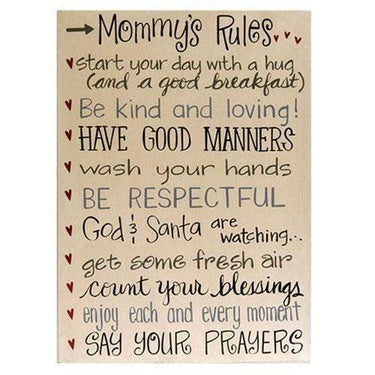 Mommy's Rules
start your day with a hug
(and a good breakfast)
Be kind and loving!
HAVE GOOD MANNERS
wash your hands
BE RESPECTFUL
God & Santa are
watching...
get some fresh air
count your blessings
enjoy each and every moment
SAY YOUR PRAYERS